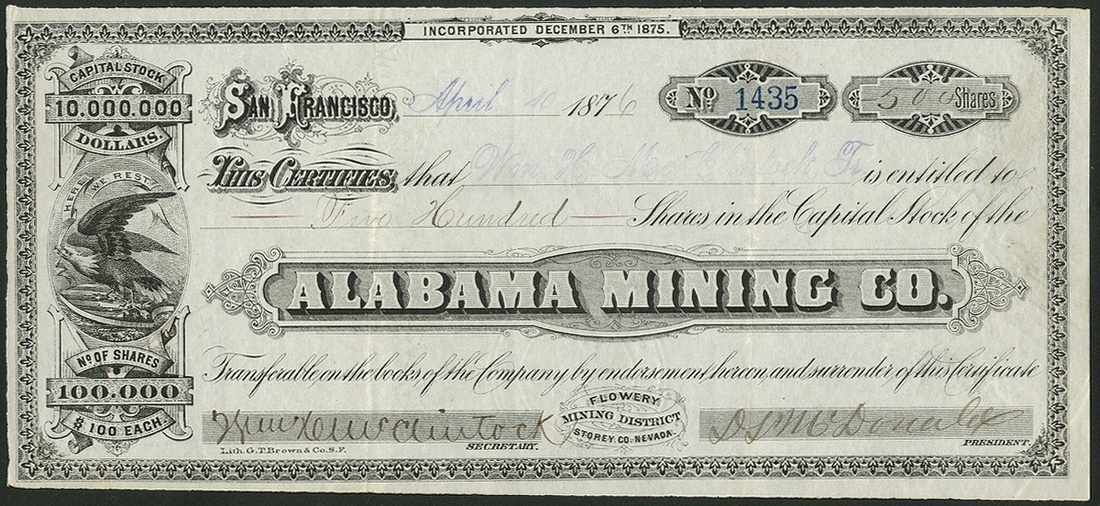 INCORPORATED DECEMBER 6TH 1875.
CAPITAL STOCK
10.000.000
DOLLARS.
SAN FRANCISCO, April 10 1876
No 1435
500 Shares
THIS CERTIFIES, that Wm H. McClintock, Tr is entitled to
Five Hundred Shares in the Capital Stock of the
HERE WE REST
ALABAMA MINING CO.
No OF SHARES
100.000
$100 EACH.
Transferable on the books of the Company by endorsement hereon, and surrender of this Certificate
FLOWERY
MINING DISTRICT
STOREY. CO. NEVADA.
Wm H McClintock
SECRETARY.
McDonald
PRESIDENT.
Lith. G.T. Brown & Co. S.F.